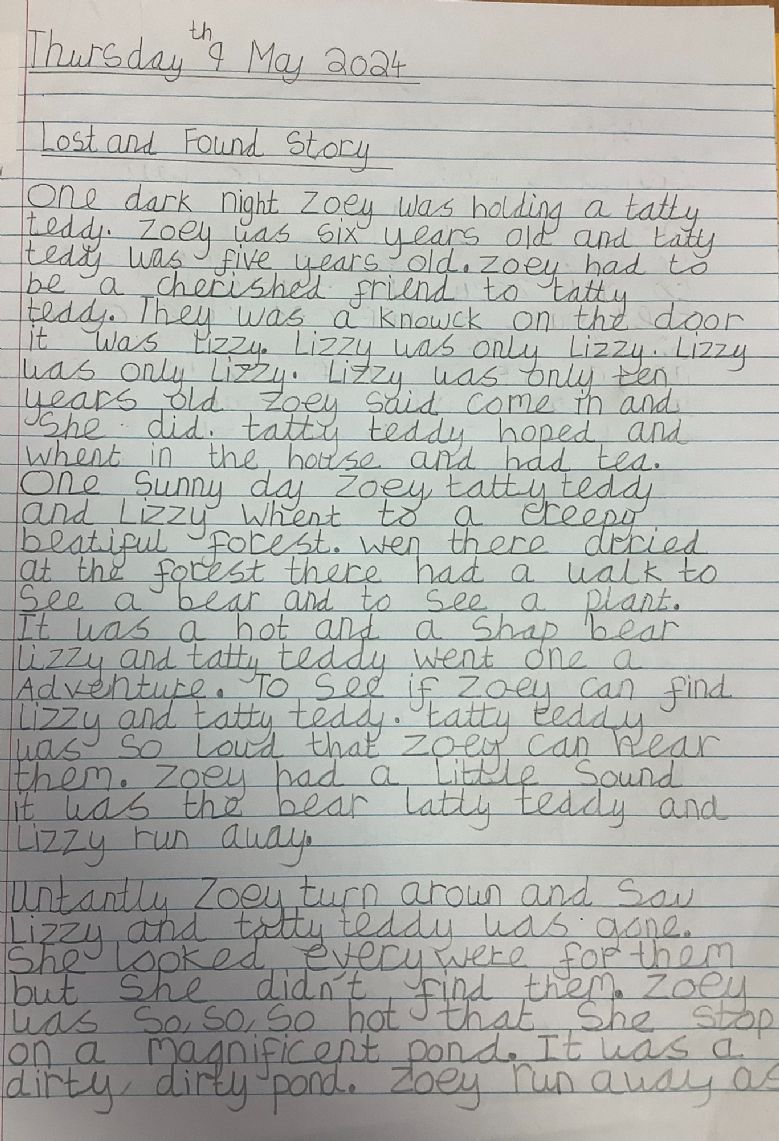 Thursday 9th May 2024
Lost and Found Story
One dark night Zoey was holding a tatty
teddy. Zoey was six years old and tatty
teddy was five years old. Zoey had to
be a cherished friend to tatty
teddy. They was a knowck on the door
it was Lizzy. Lizzy was only Lizzy. Lizzy
was only Lizzy. Lizzy was only ten
years old Zoey said come in and
She did. tatty teddy hoped and
whent in the house and had tea.
One Sunny day Zoey, tatty teddy
and Lizzy whent to a creepy
beatiful forest. wen there arried
at the forest there had a walk to
See a bear and to see a plant.
It was a hot and a shap bear
Lizzy and tatty teddy went one a
Adventure. To See if Zoey can find
Lizzy and tatty teddy. tatty teddy
was so Loud that Zoey can hear
them. Zoey had a Little Sound
it was the bear tatty teddy and
Lizzy run away.
untantly Zoey turn aroun and Saw
Lizzy and tatty teddy was gone.
She looked everywere for them
but She didn't find them. Zoey
was So, So, So hot that She stop
on a magnificent pond. It was a
dirty, dirty pond. Zoey run away as